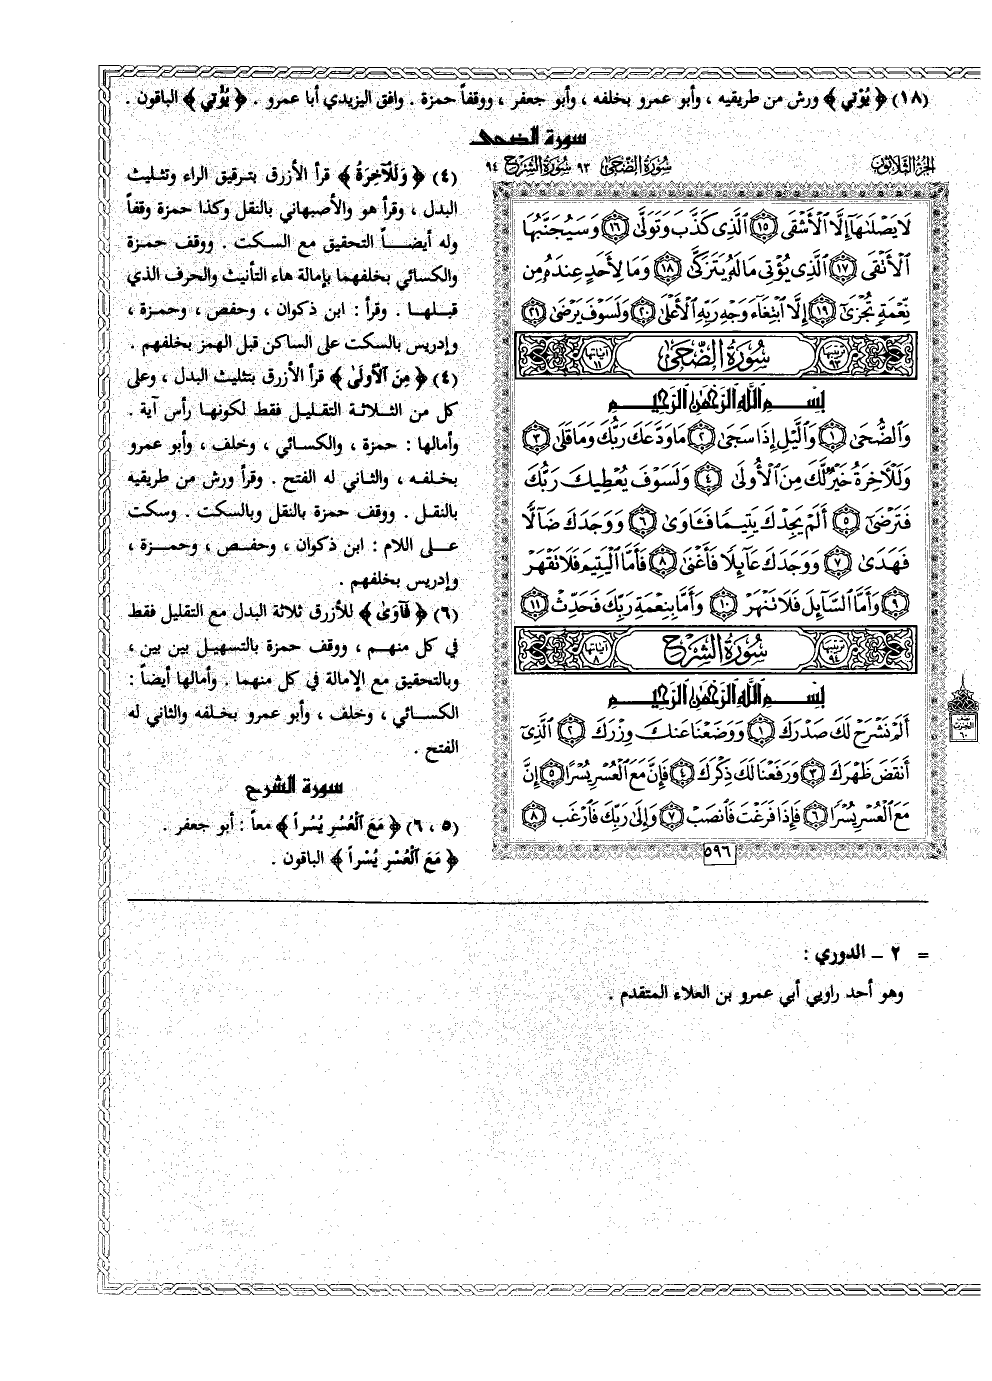 (١٨) ﴿ يُوْتِي ﴾ ورش من طريقيه ، وأبو عمرو بخلفه ، وأبو جعفر ، ووقفاً حمزة . وافق اليزيدي أبا عمرو . ﴿ يُؤْتِي ﴾ الباقون .
سورة الضحى
الجزء الثلاثون
سُورَةُ الضُّحَىٰ ٩٣ سُورَةُ الشَّرْحِ ٩٤
لَا يَصْلَىٰهَآ إِلَّا ٱلْأَشْقَى ١٥ ٱلَّذِى كَذَّبَ وَتَوَلَّىٰ ١٦ وَسَيُجَنَّبُهَا
ٱلْأَتْقَى ١٧ ٱلَّذِى يُؤْتِى مَالَهُۥ يَتَزَكَّىٰ ١٨ وَمَا لِأَحَدٍ عِندَهُۥ مِن
نِّعْمَةٍ تُجْزَىٰٓ ١٩ إِلَّا ٱبْتِغَآءَ وَجْهِ رَبِّهِ ٱلْأَعْلَىٰ ٢٠ وَلَسَوْفَ يَرْضَىٰ ٢١
ترتيبها ٩٣ سُورَةُ الضُّحَىٰ آياتها ١١
بِسْمِ ٱللَّهِ ٱلرَّحْمَٰنِ ٱلرَّحِيمِ
وَٱلضُّحَىٰ ١ وَٱلَّيْلِ إِذَا سَجَىٰ ٢ مَا وَدَّعَكَ رَبُّكَ وَمَا قَلَىٰ ٣
وَلَلْآخِرَةُ خَيْرٌ لَّكَ مِنَ ٱلْأُولَىٰ ٤ وَلَسَوْفَ يُعْطِيكَ رَبُّكَ
فَتَرْضَىٰٓ ٥ أَلَمْ يَجِدْكَ يَتِيمًا فَـَٔاوَىٰ ٦ وَوَجَدَكَ ضَآلًّا
فَهَدَىٰ ٧ وَوَجَدَكَ عَآئِلًا فَأَغْنَىٰ ٨ فَأَمَّا ٱلْيَتِيمَ فَلَا تَقْهَرْ
٩ وَأَمَّا ٱلسَّآئِلَ فَلَا تَنْهَرْ ١٠ وَأَمَّا بِنِعْمَةِ رَبِّكَ فَحَدِّثْ ١١
ترتيبها ٩٤ سُورَةُ الشَّرْحِ آياتها ٨
بِسْمِ ٱللَّهِ ٱلرَّحْمَٰنِ ٱلرَّحِيمِ
أَلَمْ نَشْرَحْ لَكَ صَدْرَكَ ١ وَوَضَعْنَا عَنكَ وِزْرَكَ ٢ ٱلَّذِىٓ
أَنقَضَ ظَهْرَكَ ٣ وَرَفَعْنَا لَكَ ذِكْرَكَ ٤ فَإِنَّ مَعَ ٱلْعُسْرِ يُسْرًا ٥ إِنَّ
مَعَ ٱلْعُسْرِ يُسْرًا ٦ فَإِذَا فَرَغْتَ فَٱنصَبْ ٧ وَإِلَىٰ رَبِّكَ فَٱرْغَب ٨
٥٩٦
نصف
الحزب
٦٠
(٤) ﴿ وَلَلْآخِرَةُ ﴾ قرأ الأزرق بترقيق الراء وتثليث
البدل ، وقرأ هو والأصبهاني بالنقل وكذا حمزة وقفاً
وله أيضاً التحقيق مع السكت . ووقف حمزة
والكسائي بخلفهما بإمالة هاء التأنيث والحرف الذي
قبلها . وقرأ : ابن ذكوان ، وحفص ، وحمزة ،
وإدريس بالسكت على الساكن قبل الهمز بخلفهم .
(٤) ﴿ مِنَ الْأُولَىٰ ﴾ قرأ الأزرق بتثليث البدل ، وعلى
كل من الثلاثة التقليل فقط لكونها رأس آية .
وأمالها : حمزة ، والكسائي ، وخلف ، وأبو عمرو
بخلفه ، والثاني له الفتح . وقرأ ورش من طريقيه
بالنقل . ووقف حمزة بالنقل وبالسكت . وسكت
على اللام : ابن ذكوان ، وحفص ، وحمزة ،
وإدريس بخلفهم .
(٦) ﴿ فَآوَىٰ ﴾ للأزرق ثلاثة البدل مع التقليل فقط
في كل منهم ، ووقف حمزة بالتسهيل بين بين ،
وبالتحقيق مع الإمالة في كل منهما . وأمالها أيضاً :
الكسائي ، وخلف ، وأبو عمرو بخلفه والثاني له
الفتح .
سورة الشرح
(٥ ، ٦) ﴿ مَعَ الْعُسُرِ يُسُراً ﴾ معاً : أبو جعفر .
﴿ مَعَ الْعُسْرِ يُسْراً ﴾ الباقون .
= ٢ ـ الدوري :
وهو أحد راويي أبي عمرو بن العلاء المتقدم .